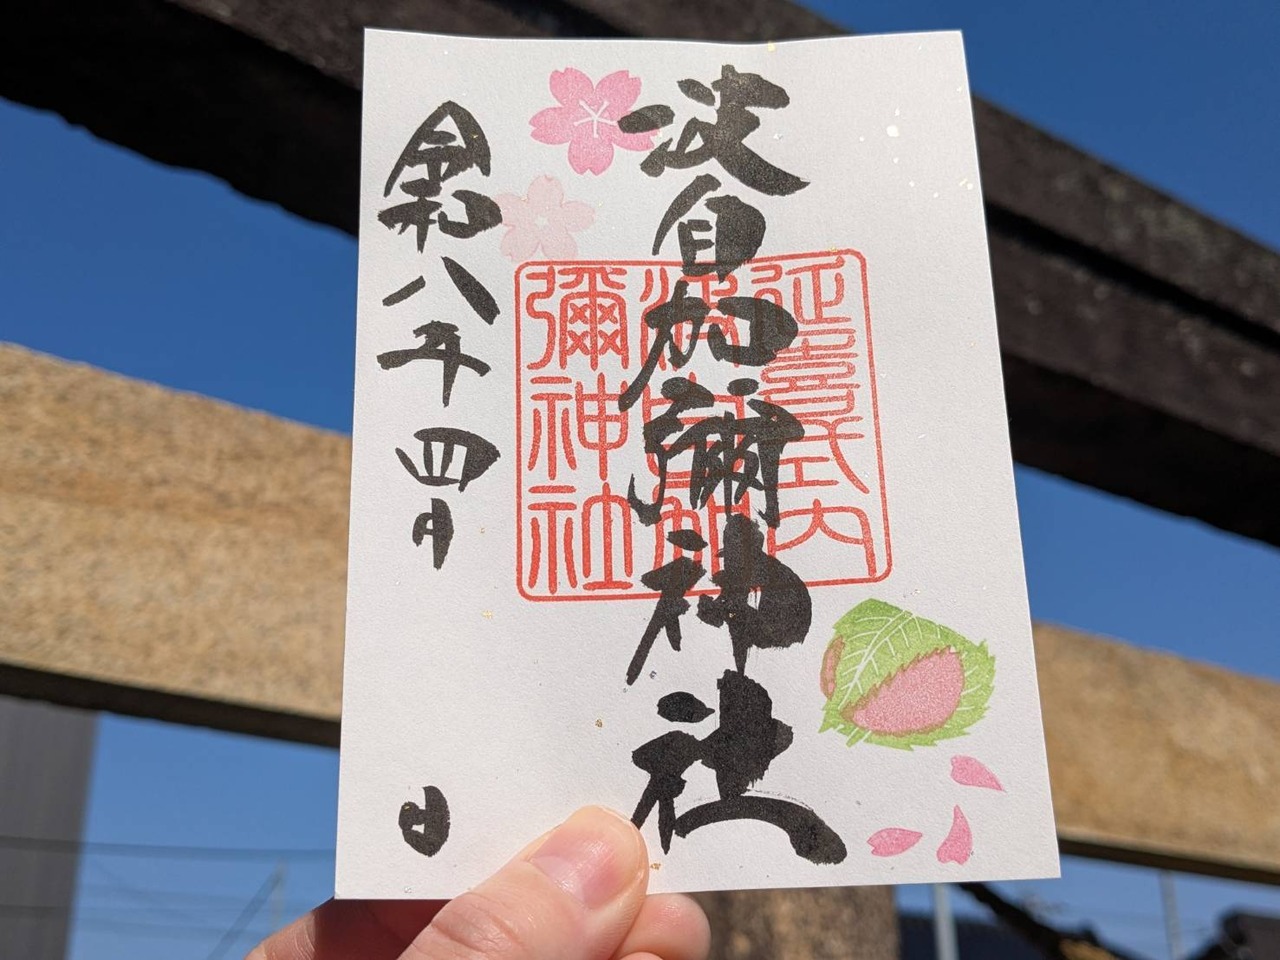 波自加彌神社
延喜式内
波自加
彌神社
令和八年四月 日